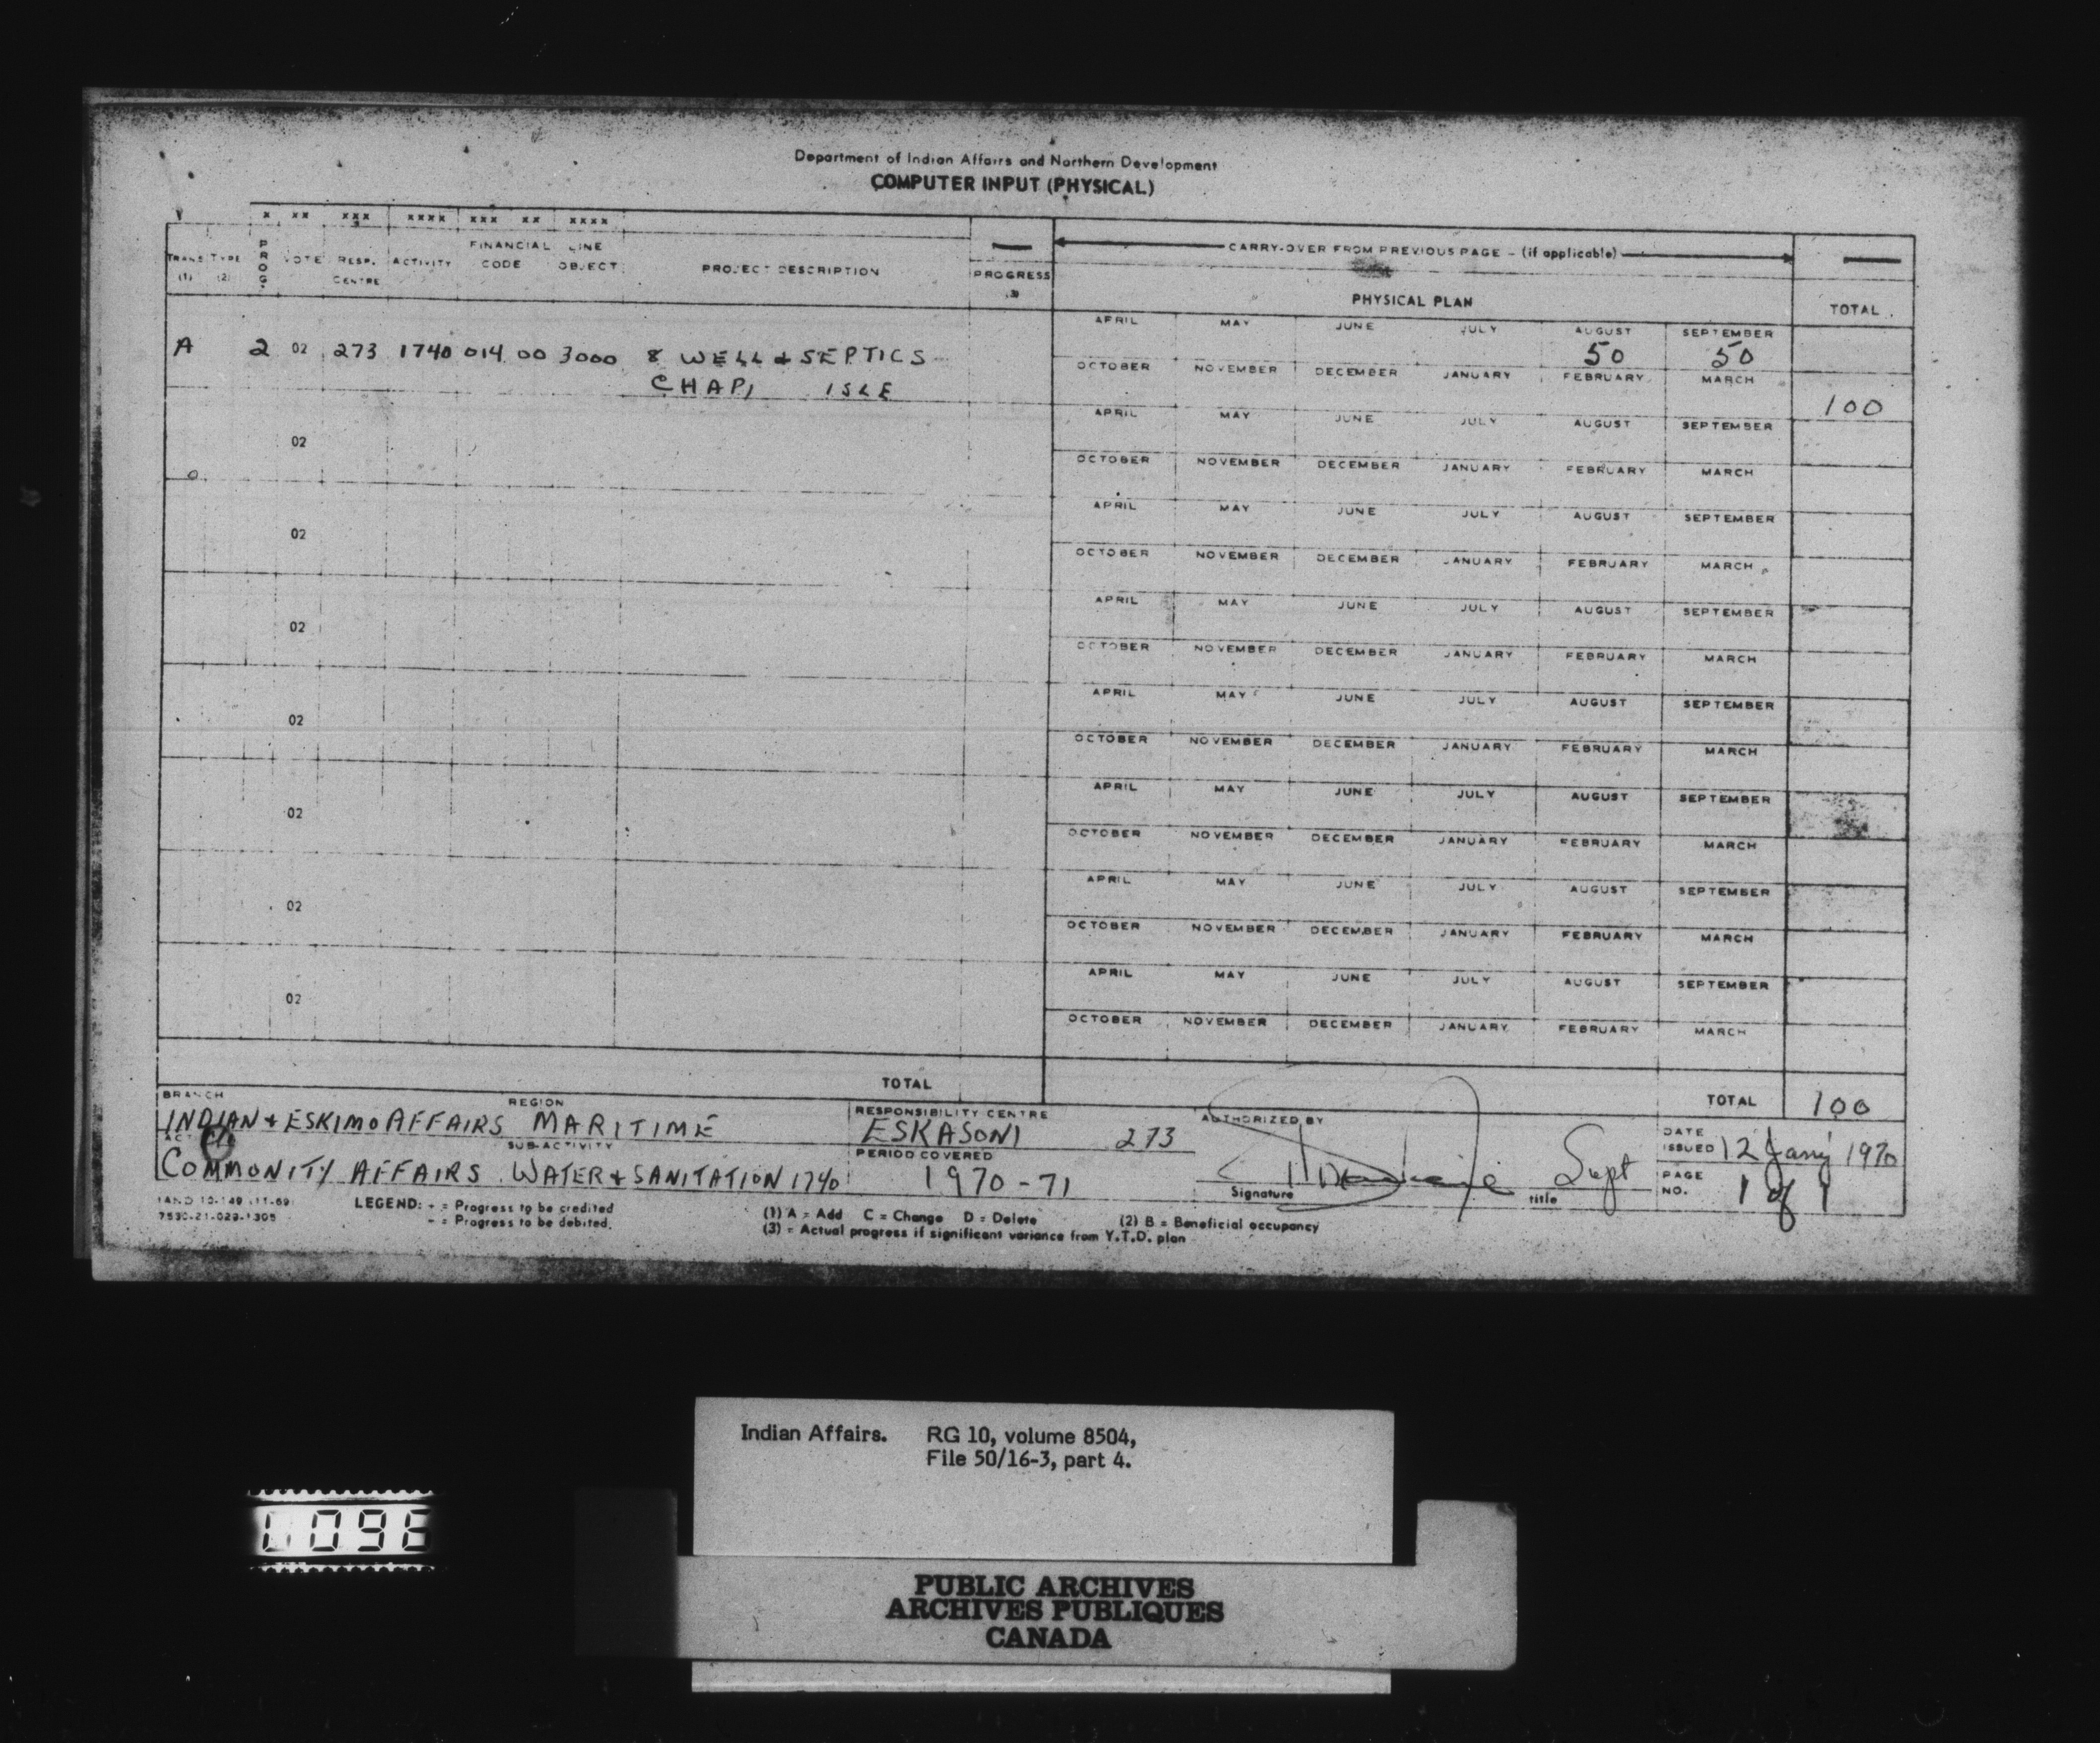 Department of Indian Affairs and Northern Development
COMPUTER INPUT (PHYSICAL)
x xx xxx xxxx xxx xx xxxx
TRANS TYPE PROG. VOTE RESP. CENTRE ACTIVITY FINANCIAL CODE LINE OBJECT PROJECT DESCRIPTION PROGRESS
(1) (2) (3)
CARRY-OVER FROM PREVIOUS PAGE - (if applicable)
PHYSICAL PLAN TOTAL
APRIL MAY JUNE JULY AUGUST SEPTEMBER
A 2 02 273 1740 014 00 3000 8 WELL & SEPTICS 50 50
OCTOBER NOVEMBER DECEMBER JANUARY FEBRUARY MARCH
CHAP, ISLE 100
APRIL MAY JUNE JULY AUGUST SEPTEMBER
02
OCTOBER NOVEMBER DECEMBER JANUARY FEBRUARY MARCH
APRIL MAY JUNE JULY AUGUST SEPTEMBER
02
OCTOBER NOVEMBER DECEMBER JANUARY FEBRUARY MARCH
APRIL MAY JUNE JULY AUGUST SEPTEMBER
02
OCTOBER NOVEMBER DECEMBER JANUARY FEBRUARY MARCH
APRIL MAY JUNE JULY AUGUST SEPTEMBER
02
OCTOBER NOVEMBER DECEMBER JANUARY FEBRUARY MARCH
APRIL MAY JUNE JULY AUGUST SEPTEMBER
02
OCTOBER NOVEMBER DECEMBER JANUARY FEBRUARY MARCH
APRIL MAY JUNE JULY AUGUST SEPTEMBER
02
OCTOBER NOVEMBER DECEMBER JANUARY FEBRUARY MARCH
APRIL MAY JUNE JULY AUGUST SEPTEMBER
02
OCTOBER NOVEMBER DECEMBER JANUARY FEBRUARY MARCH
TOTAL TOTAL 100
BRANCH REGION RESPONSIBILITY CENTRE AUTHORIZED BY
INDIAN & ESKIMO AFFAIRS MARITIME ESKASONI 273
DATE ISSUED 12 Jany 1970
SUB-ACTIVITY PERIOD COVERED
COMMUNITY AFFAIRS WATER & SANITATION 1740 1970-71
Signature Supt title
PAGE NO. 1 of 1
IAND 10-149 (11-69)
7530-21-029-1305
LEGEND: + = Progress to be credited
- = Progress to be debited.
(1) A = Add C = Change D = Delete (2) B = Beneficial occupancy
(3) = Actual progress if significant variance from Y.T.D. plan
Indian Affairs. RG 10, volume 8504,
File 50/16-3, part 4.
PUBLIC ARCHIVES
ARCHIVES PUBLIQUES
CANADA